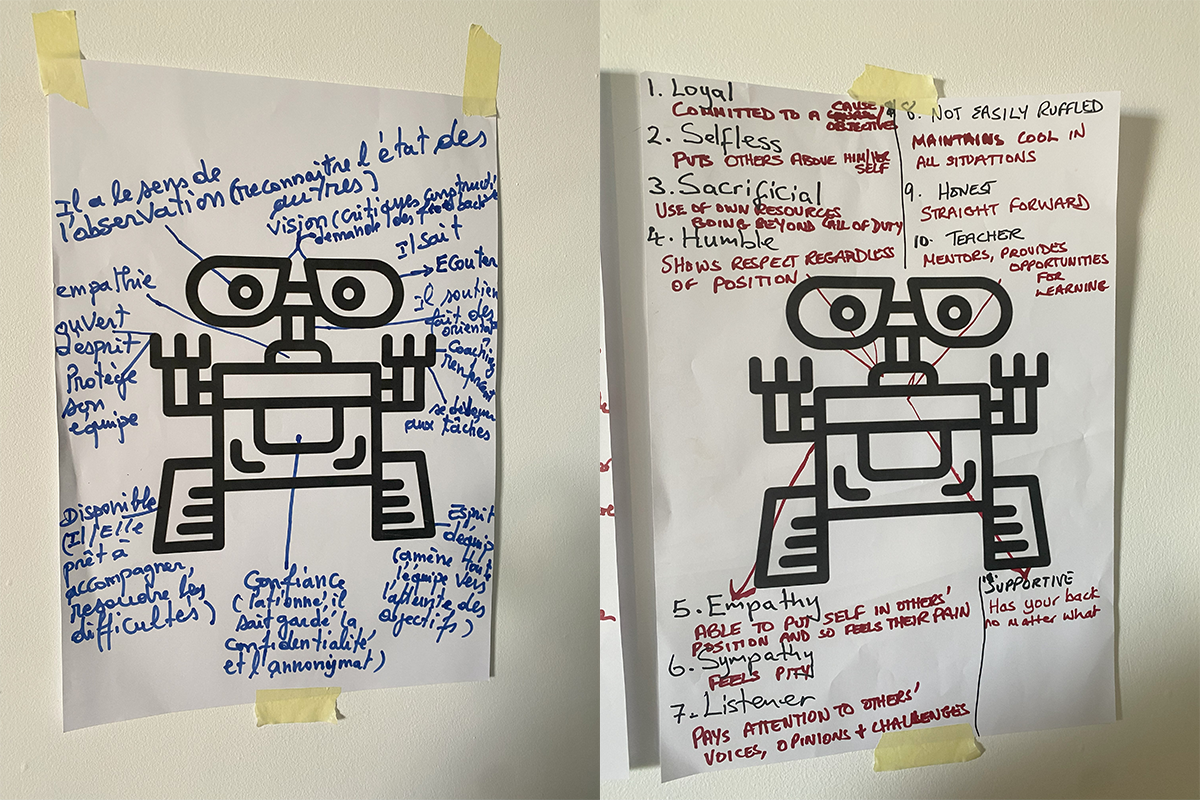 Il a le sens de
l'observation (reconnaître l'état des
autres)
vision (critiques constructi
demande des feed back)
Il sait
Ecouter
empathie
Il soutien
fait des
orientat
ouvert
d'esprit
Coaching
renforcent
Protège
son
equipe
se dévouer
aux tâches
Disponible
(Il/Elle
prêt à
accompagner,
resoudre les
difficultés)
Confiance
il
sait gardé la
confidentialité
et l'annonymat)
Esprit
d'équip
(amène toute
l'équipe vers
l'atteinte des
objectifs)
1. Loyal
COMMITTED TO A CAUSE/
OBJECTIVE
2. Selfless
PUTS OTHERS ABOVE HIM/HER
SELF
3. Sacrificial
USE OF OWN RESOURCES
BEING BEYOND CALL OF DUTY
4. Humble
SHOWS RESPECT REGARDLESS
OF POSITION
8. NOT EASILY RUFFLED
MAINTAINS COOL IN
ALL SITUATIONS
9. HONEST
STRAIGHT FORWARD
10. TEACHER
MENTORS, PROVIDES
OPPORTUNITIES
FOR
LEARNING
5. Empathy
ABLE TO PUT SELF IN OTHERS'
POSITION AND SO FEELS THEIR PAIN
6. Sympathy
FEELS PITY
7. Listener
PAYS ATTENTION TO OTHERS'
VOICES, OPINIONS + CHALLENGES
SUPPORTIVE
Has your back
no matter what